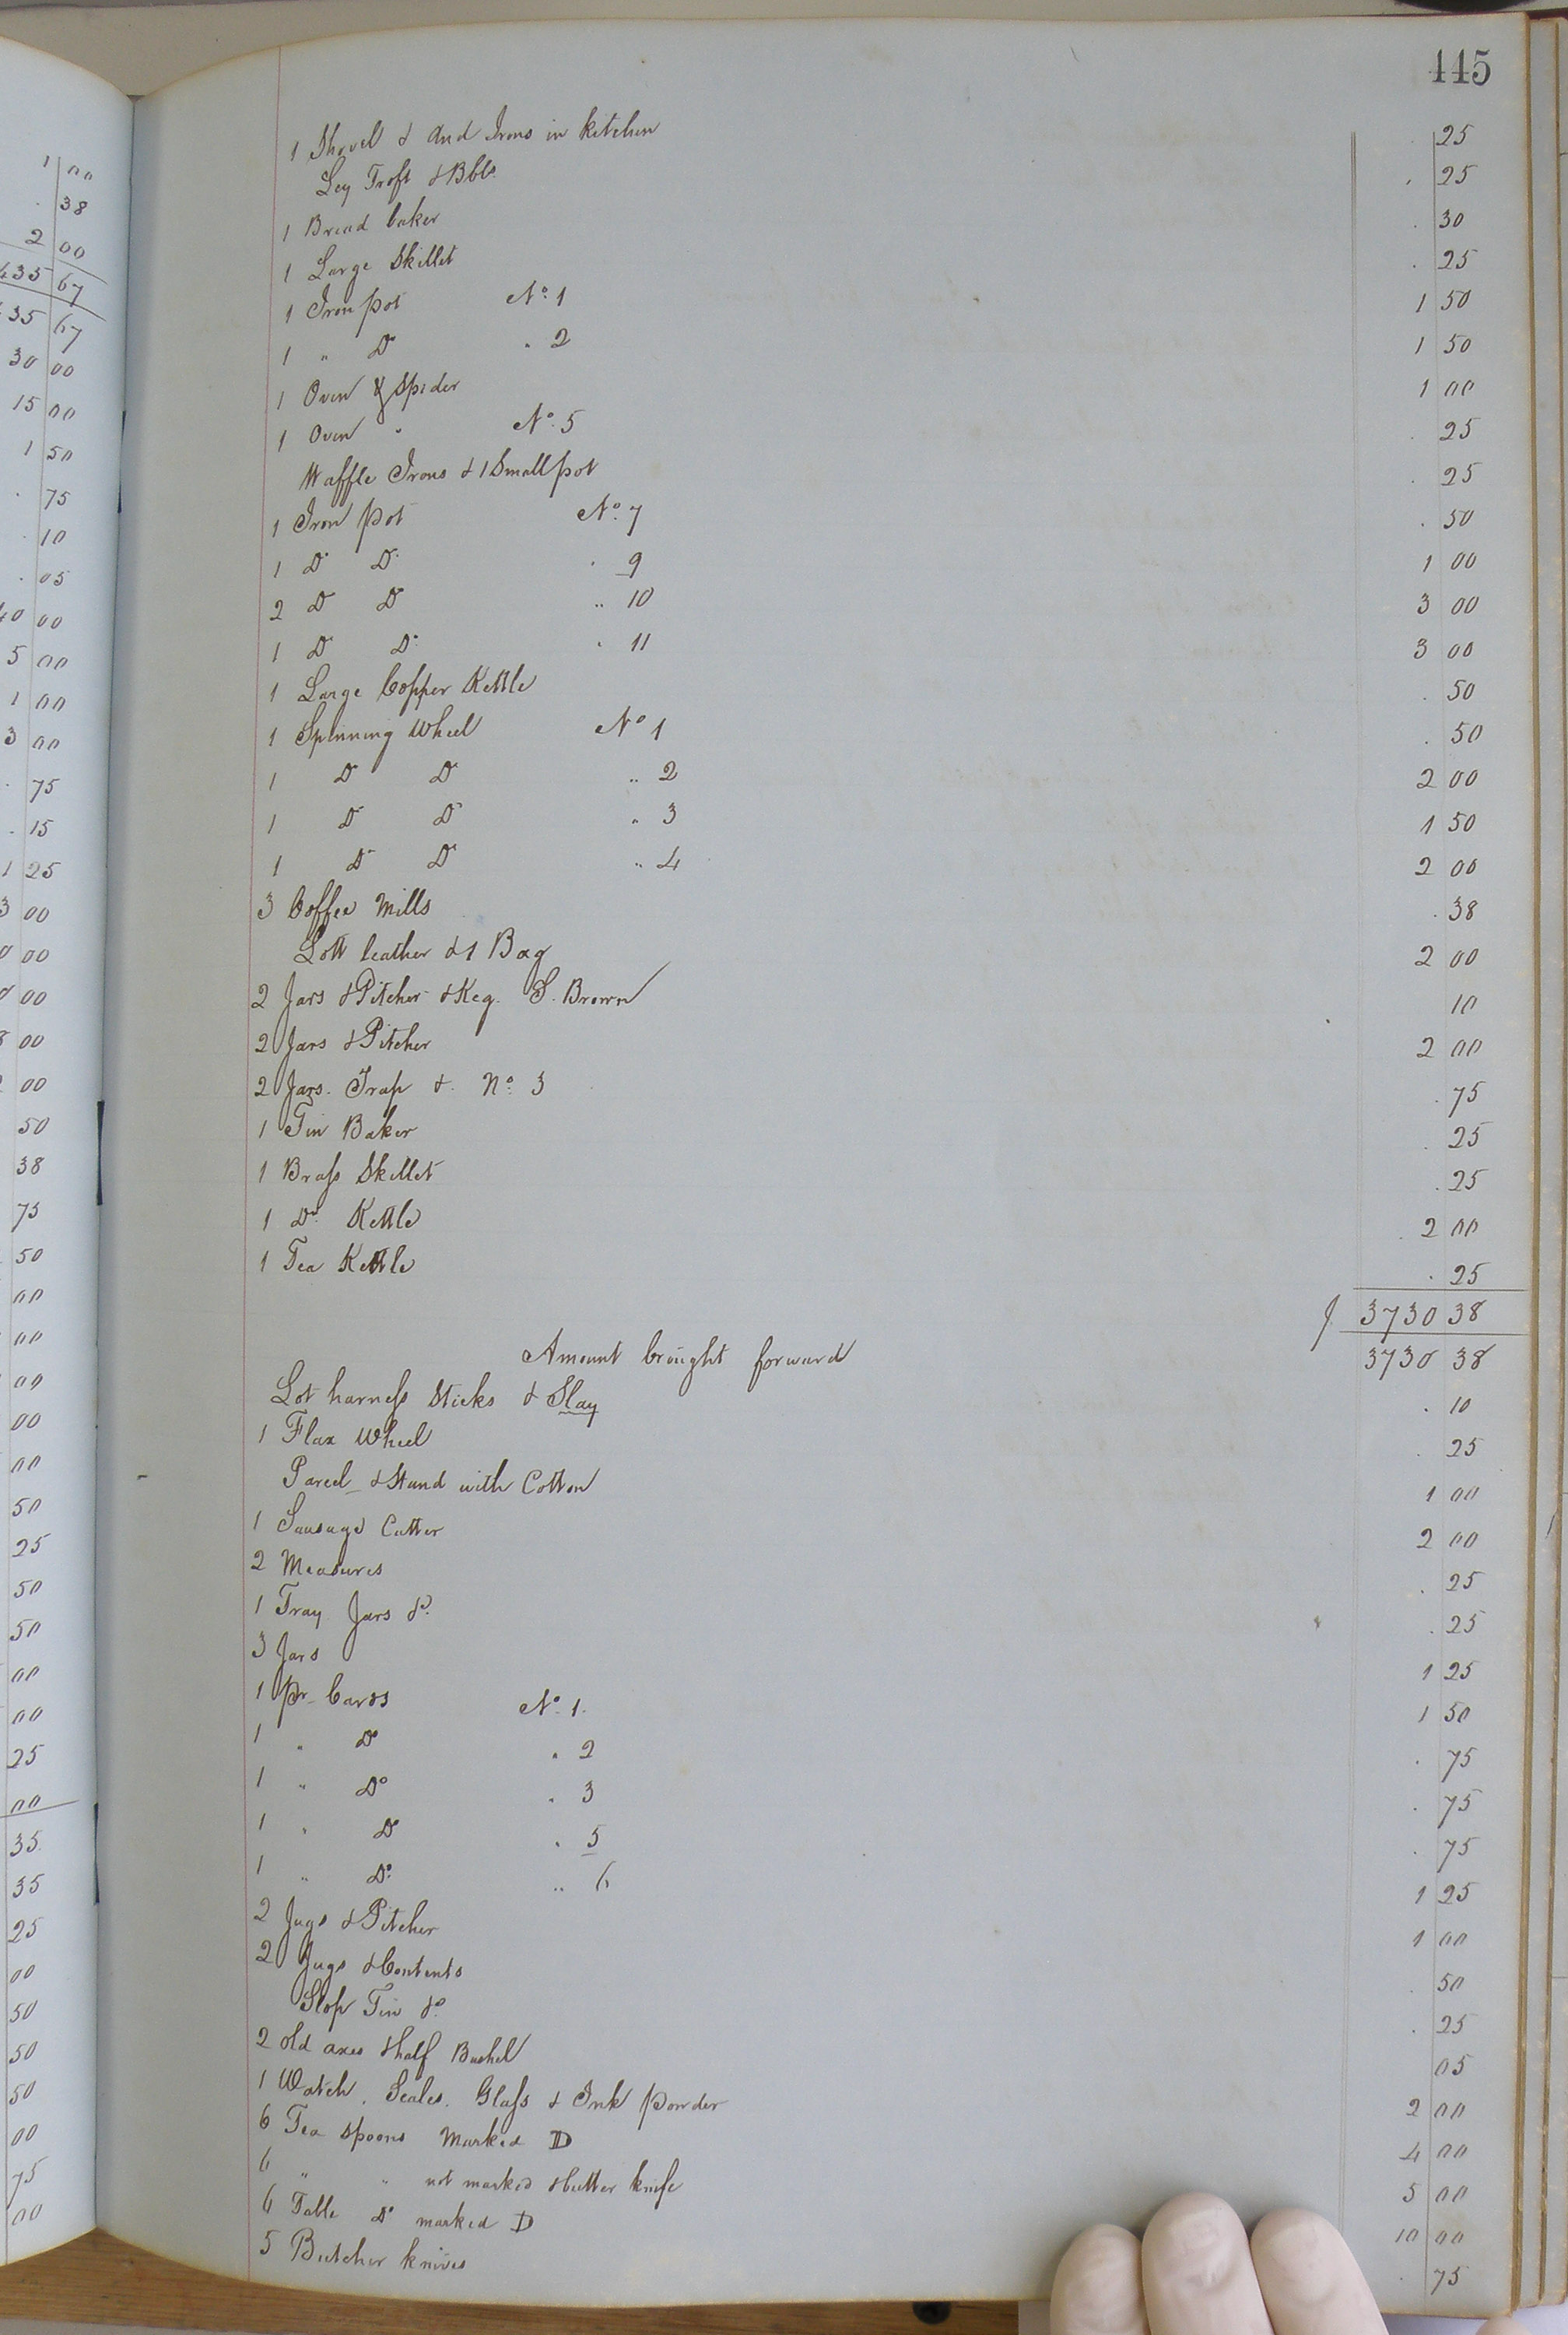 445
1 Shovel & And Irons in kitchen . 25
Ley Troft & Bbls . 25
1 Bread baker . 30
1 Large Skillet . 25
1 Iron pot No. 1 1 50
1 " Do " 2 1 50
1 Oven & Spider 1 00
1 Oven " No. 5 . 25
Waffle Irons & 1 Small pot . 25
1 Iron pot No. 7 . 50
1 Do Do " 9 1 00
2 Do Do " 10 3 00
1 Do Do " 11 3 00
1 Large Copper Kettle . 50
1 Spinning Wheel No 1 . 50
1 Do Do " 2 2 00
1 Do Do " 3 1 50
1 Do Do " 4 2 00
3 Coffee Mills . 38
Lott leather & 1 Bag 2 00
2 Jars & Pitcher & Keg. S. Brown 10
2 Jars & Pitcher 2 00
2 Jars. Trap &. No. 3 . 75
1 Tin Baker . 25
1 Brass Skillet . 25
1 Do. Kettle . 2 00
1 Tea Kettle . 25
3730 38
Amount brought forward 3730 38
Lot harness Sticks & Slay . 10
1 Flax Wheel . 25
Parcel & Stand with Cotton 1 00
1 Sausage Cutter 2 00
2 Measures . 25
1 Tray Jars &c. . 25
3 Jars 1 25
1 pr. Cards No. 1. 1 50
1 " Do " 2 . 75
1 " Do " 3 . 75
1 " Do " 5 . 75
1 " Do. " 6 1 25
2 Jugs & Pitcher 1 00
2 Jugs & Contents . 50
Slop Tin &c. . 25
2 old axes & half Bushel 05
1 Watch, Scales. Glass & Ink powder 2 00
6 Tea Spoons Marked D 4 00
6 " " not marked & butter knife 5 00
6 Table Do marked D 10 00
5 Butcher knives . 75
1 00
. 38
2 00
435 67
35 67
30 00
15 00
1 50
. 75
. 10
. 05
40 00
5 00
1 00
3 00
. 75
. 15
1 25
3 00
00
00
00
00
50
38
75
50
00
00
00
00
00
50
25
50
50
00
00
25
00
35
35
25
00
50
50
50
00
75
00